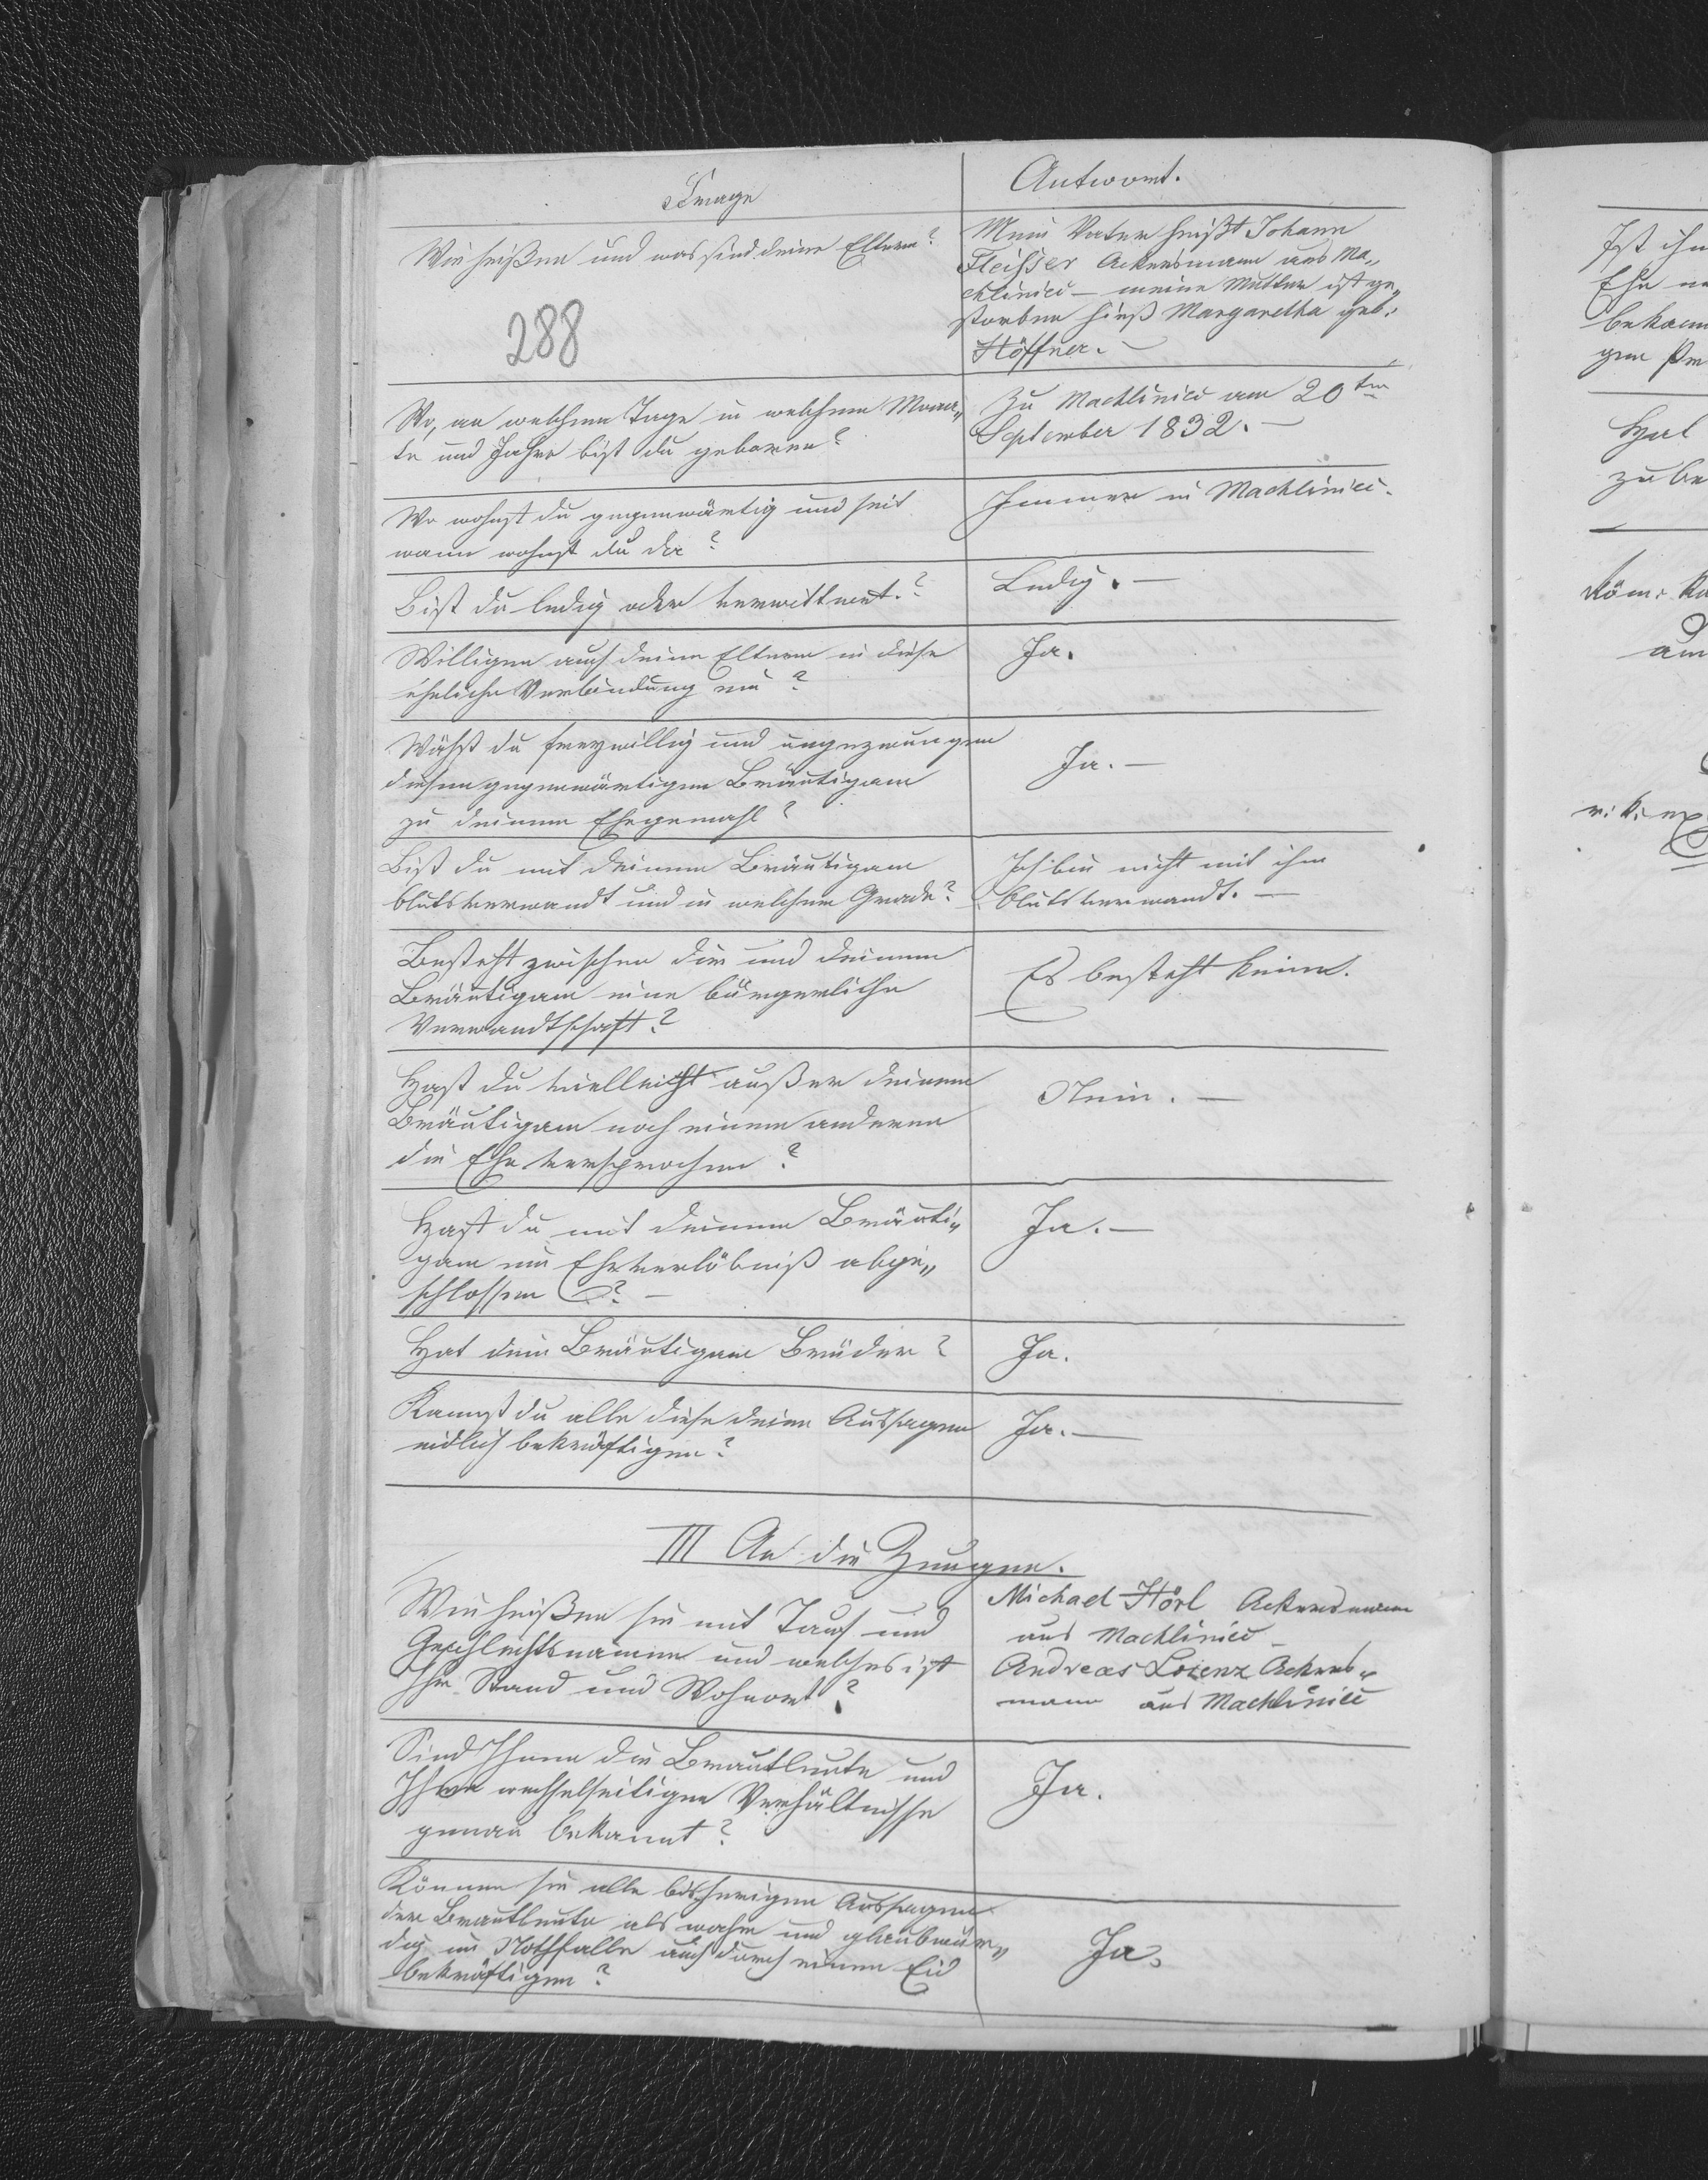 Frage
Antwort.
Wie heißen und was sind deine Eltern?
Mein Vater heißt Johann
Fleißer Ackersmann aus Ma„
chliniec – meine Mutter ist ge„
storben hieß Margaretha geb.
Höffner. –
288
Wo, an welchem Tage in welchem Mona„
te und Jahre bist du geboren?
Zu Machliniec am 20ten
September 1832. –
Wo wohnst du gegenwärtig und seit
wann wohnst du da?
Immer in Machliniec.
Bist du ledig oder verwittwet.?
Ledig. –
Willigen auch deine Eltern in diese
eheliche Verbindung ein?
Ja.
Wählst du freywillig und ungezwungen
diesen gegenwärtigen Bräutigam
zu deinem Ehegemahl?
Ja. –
Bist du mit deinem Bräutigam
blutsverwandt und in welchem Grade?
Ich bin nicht mit ihm
blutsverwandt. –
Besteht zwischen dir und deinem
Bräutigam eine bürgerliche
Verwandtschaft?
Es besteht keine.
Hast du vielleicht außer deinem
Bräutigam noch einem anderen
die Ehe versprochen?
Nein. –
Hast du mit deinem Bräuti„
gam ein Eheverlöbniß abge„
schlossen ? –
Ja. –
Hat dein Bräutigam Brüder?
Ja.
Kannst du alle diese deine Aussagen
eidlich bekräftigen?
Ja. –
III An die Zeugen.
Wie heißen sie mit Tauf und
Geschlechtsnamen und welches ist
Ihr Stand und Wohnort?
Michael Hörl Ackersmann
aus Machliniec –
Andreas Lorenz Ackers„
mann aus Machliniec
Sind Ihnen die Brautleute und
Ihre wechselseitigen Verhältnisse
genau bekannt?
Ja.
Können sie alle bisherigen Aussagen
der Brautleute als wahr und glaubwür„
dig im Nothfalle auch durch einen Eid
bekräftigen?
Ja.
Ist ihn
Ehe
bekann
gen
Hat
zu be
Röm: Ka